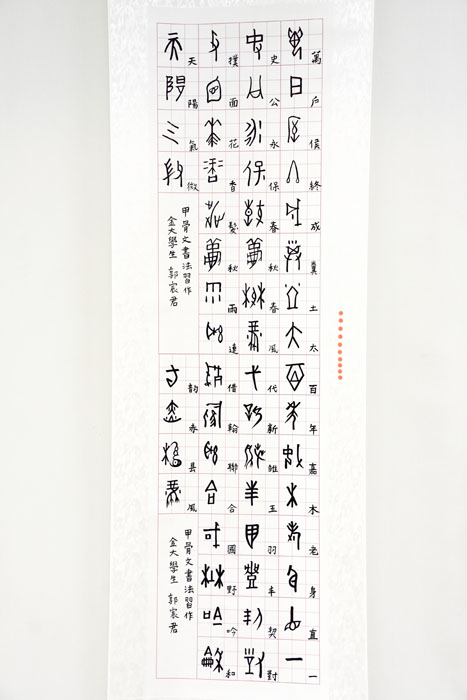 萬戶侯終成糞土太
史公永保春秋春風
樸面花香鬢秋雨連
天陽氣微
甲骨文書法習作
金大學生 郭君
百年嘉木老身直一
代新玉羽丰契對
借翰聯合國野吟和
韵赤县風
甲骨文書法習作
金大學生 郭君